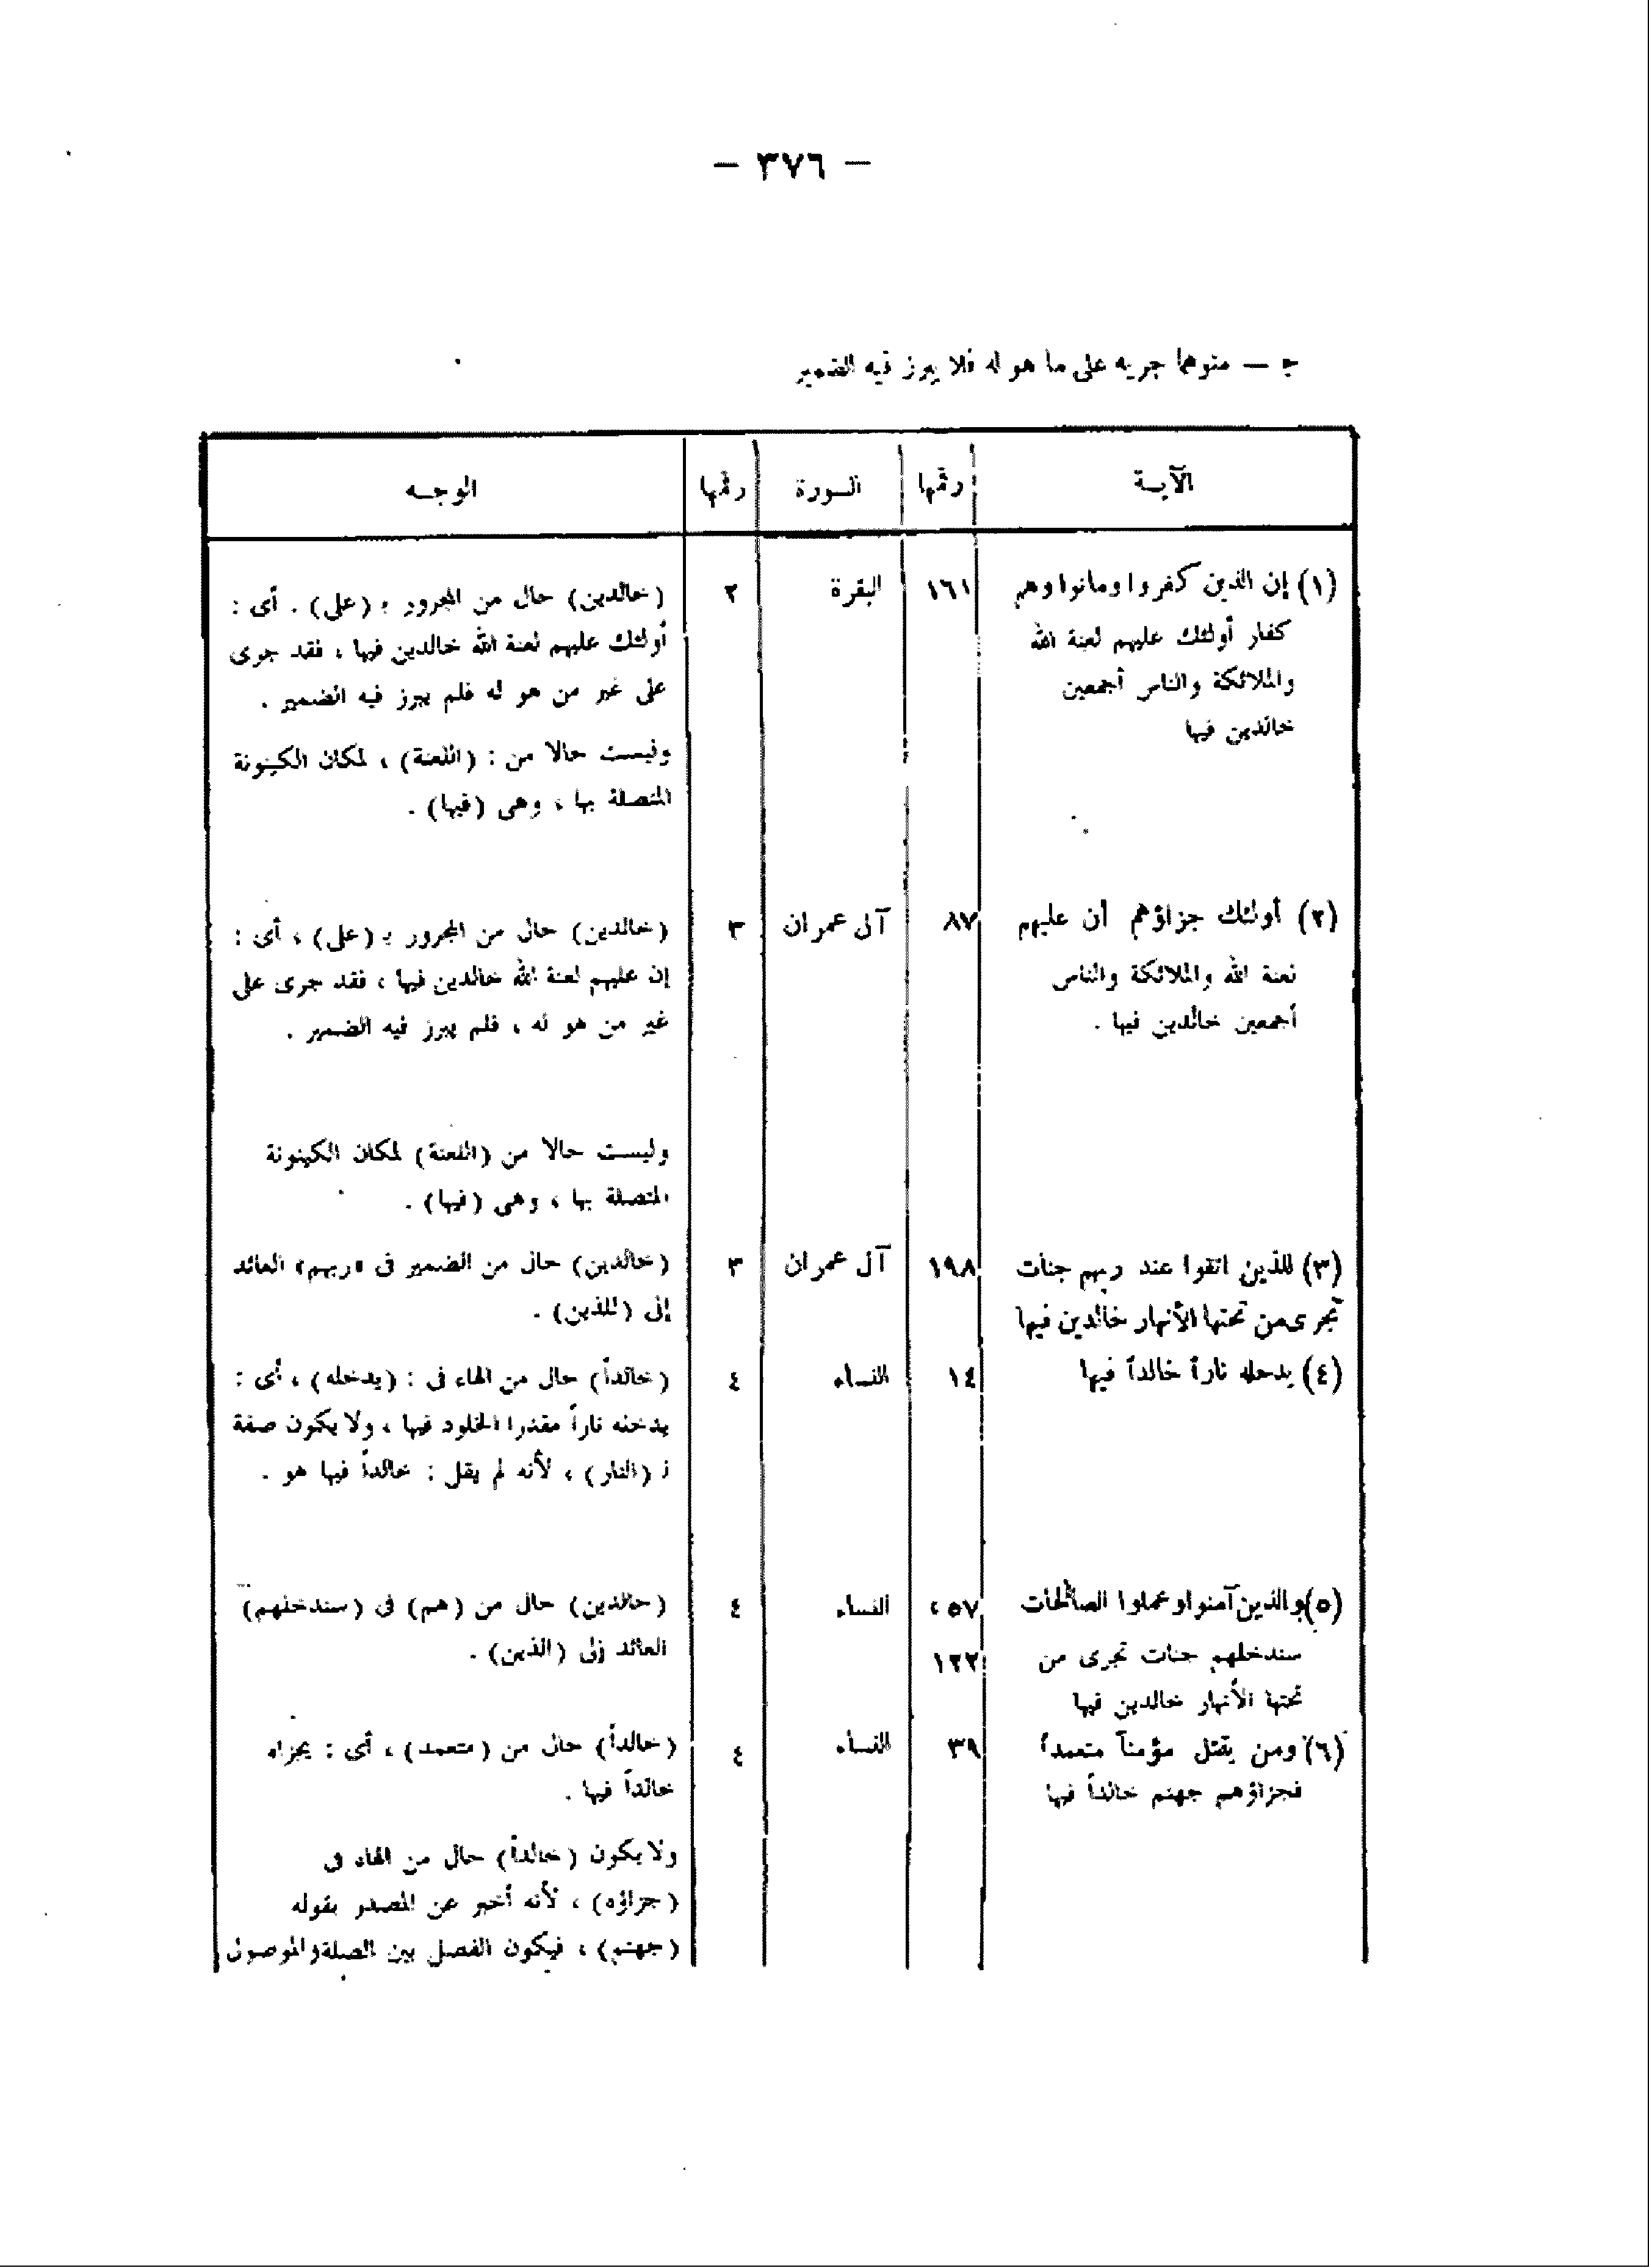 — ٣٧٦ —
ج — متوهما جريه على ما هو له فلا يبرز فيه الضمير
الآيــة رقمها السورة رقمها الوجــه
(١) إن الذين كفروا وماتوا وهم ١٦١ البقرة ٢ (خالدين) حال من المجرور بـ (على) . أى :
كفار أولئك عليهم لعنة الله أولئك عليهم لعنة الله خالدين فيها ، فقد جرى
والملائكة والناس أجمعين على غير من هو له فلم يبرز فيه الضمير .
خالدين فيها وليست حالا من : (اللعنة) ، لمكان الكينونة
المتصلة بها ، وهى (فيها) .
(٢) أولئك جزاؤهم أن عليهم ٨٧ آل عمران ٣ (خالدين) حال من المجرور بـ (على) ، أى :
لعنة الله والملائكة والناس إن عليهم لعنة الله خالدين فيها ، فقد جرى على
أجمعين خالدين فيها . غير من هو له ، فلم يبرز فيه الضمير .
وليست حالا من (اللعنة) لمكان الكينونة
المتصلة بها ، وهى (فيها) .
(٣) للذين اتقوا عند ربهم جنات ١٩٨ آل عمران ٣ (خالدين) حال من الضمير فى «ربهم» العائد
تجرى من تحتها الأنهار خالدين فيها إلى (للذين) .
(٤) يدخله ناراً خالداً فيها ١٤ النساء ٤ (خالداً) حال من الهاء فى : (يدخله) ، أى :
يدخله ناراً مقدرا الخلود فيها ، ولا يكون صفة
لـ (النار) ، لأنه لم يقل : خالداً فيها هو .
(٥) والذين آمنوا وعملوا الصالحات ٥٧ ، النساء ٤ (خالدين) حال من (هم) فى (سندخلهم)
سندخلهم جنات تجرى من ١٢٢ العائد إلى (الذين) .
تحتها الأنهار خالدين فيها
(٦) ومن يقتل مؤمناً متعمداً ٣٩ النساء ٤ (خالداً) حال من (متعمد) ، أى : يجزاه
فجزاؤهم جهنم خالداً فيها خالداً فيها .
ولا يكون (خالداً) حال من الهاء فى
(جزاؤه) ، لأنه أخبر عن المصدر بقوله
(جهنم) ، فيكون الفصل بين الصلة والموصول